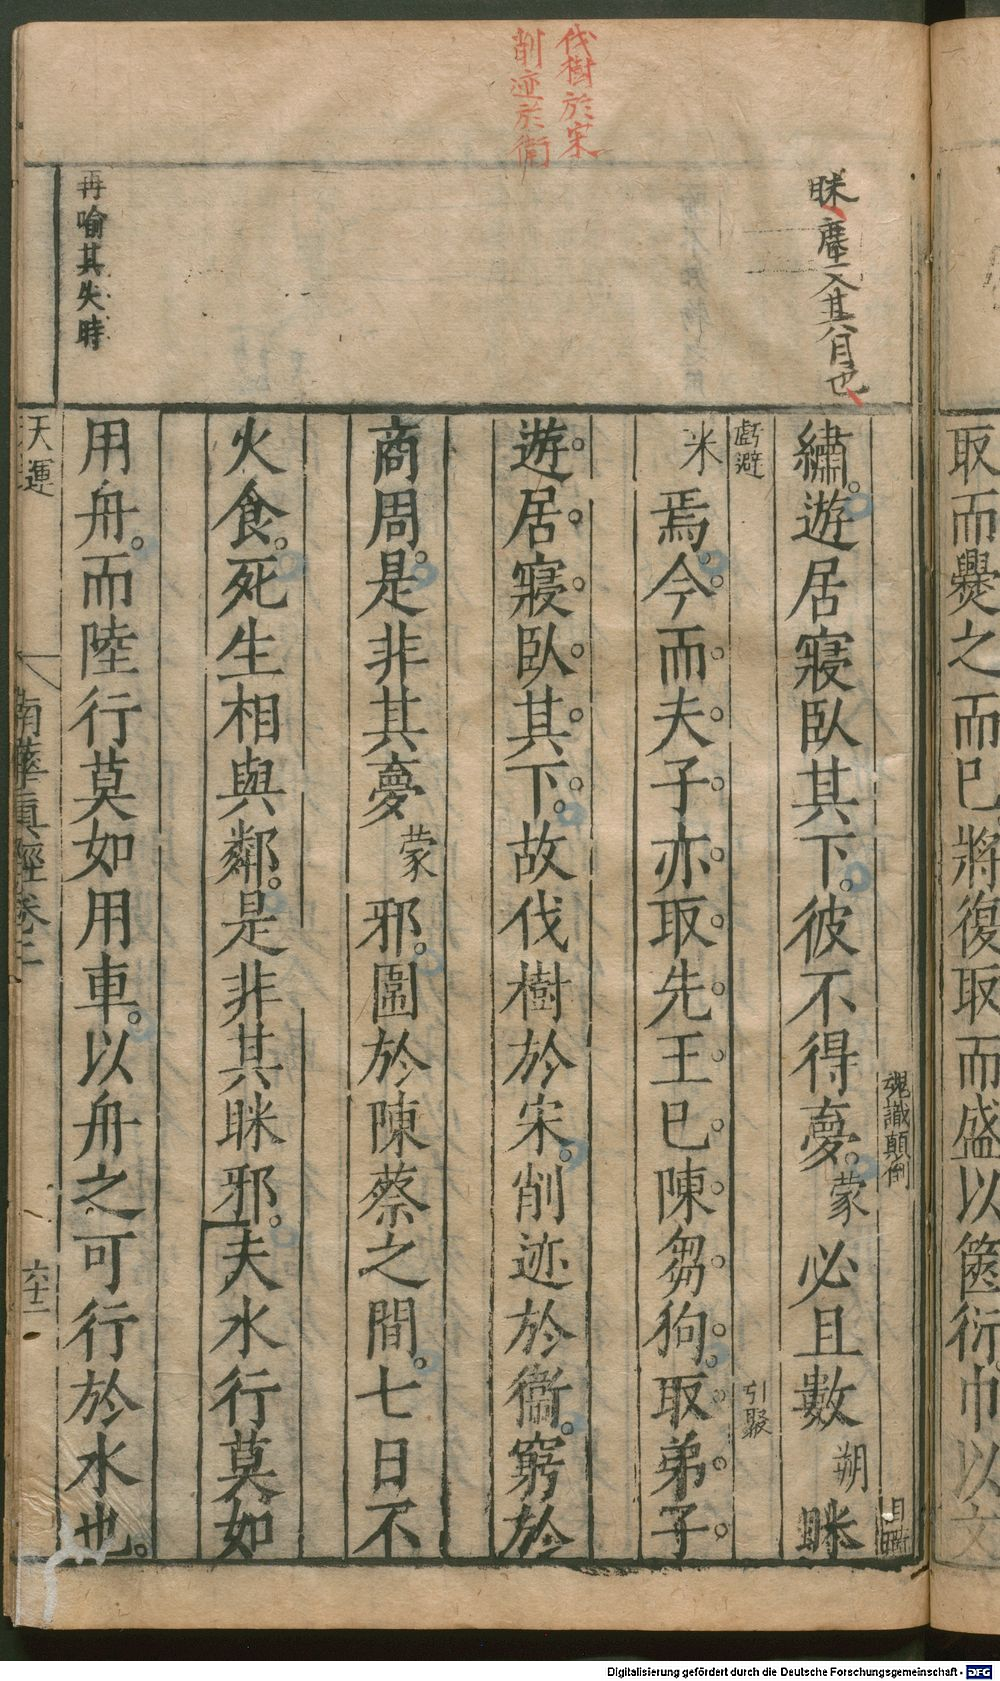 取而爨之而已將復取而盛以篋衍巾以文
伐樹於宋
削迹於衛
眯塵入其目也
再喻其失時
魂識顛倒
繡。遊居寢臥其下。彼不得夢。蒙必且數朔眯
戲避
引聚
米焉。今而夫子亦取先王已陳芻狗。取弟子
遊居寢臥其下。故伐樹於宋。削迹於衞。窮於
商周。是非其夢蒙邪。圍於陳蔡之間。七日不
火食。死生相與鄰。是非其眯邪。夫水行莫如
用舟。而陸行莫如用車。以舟之可行於水也。
天運
南華真經卷三
六十二
Digitalisierung gefördert durch die Deutsche Forschungsgemeinschaft - DFG